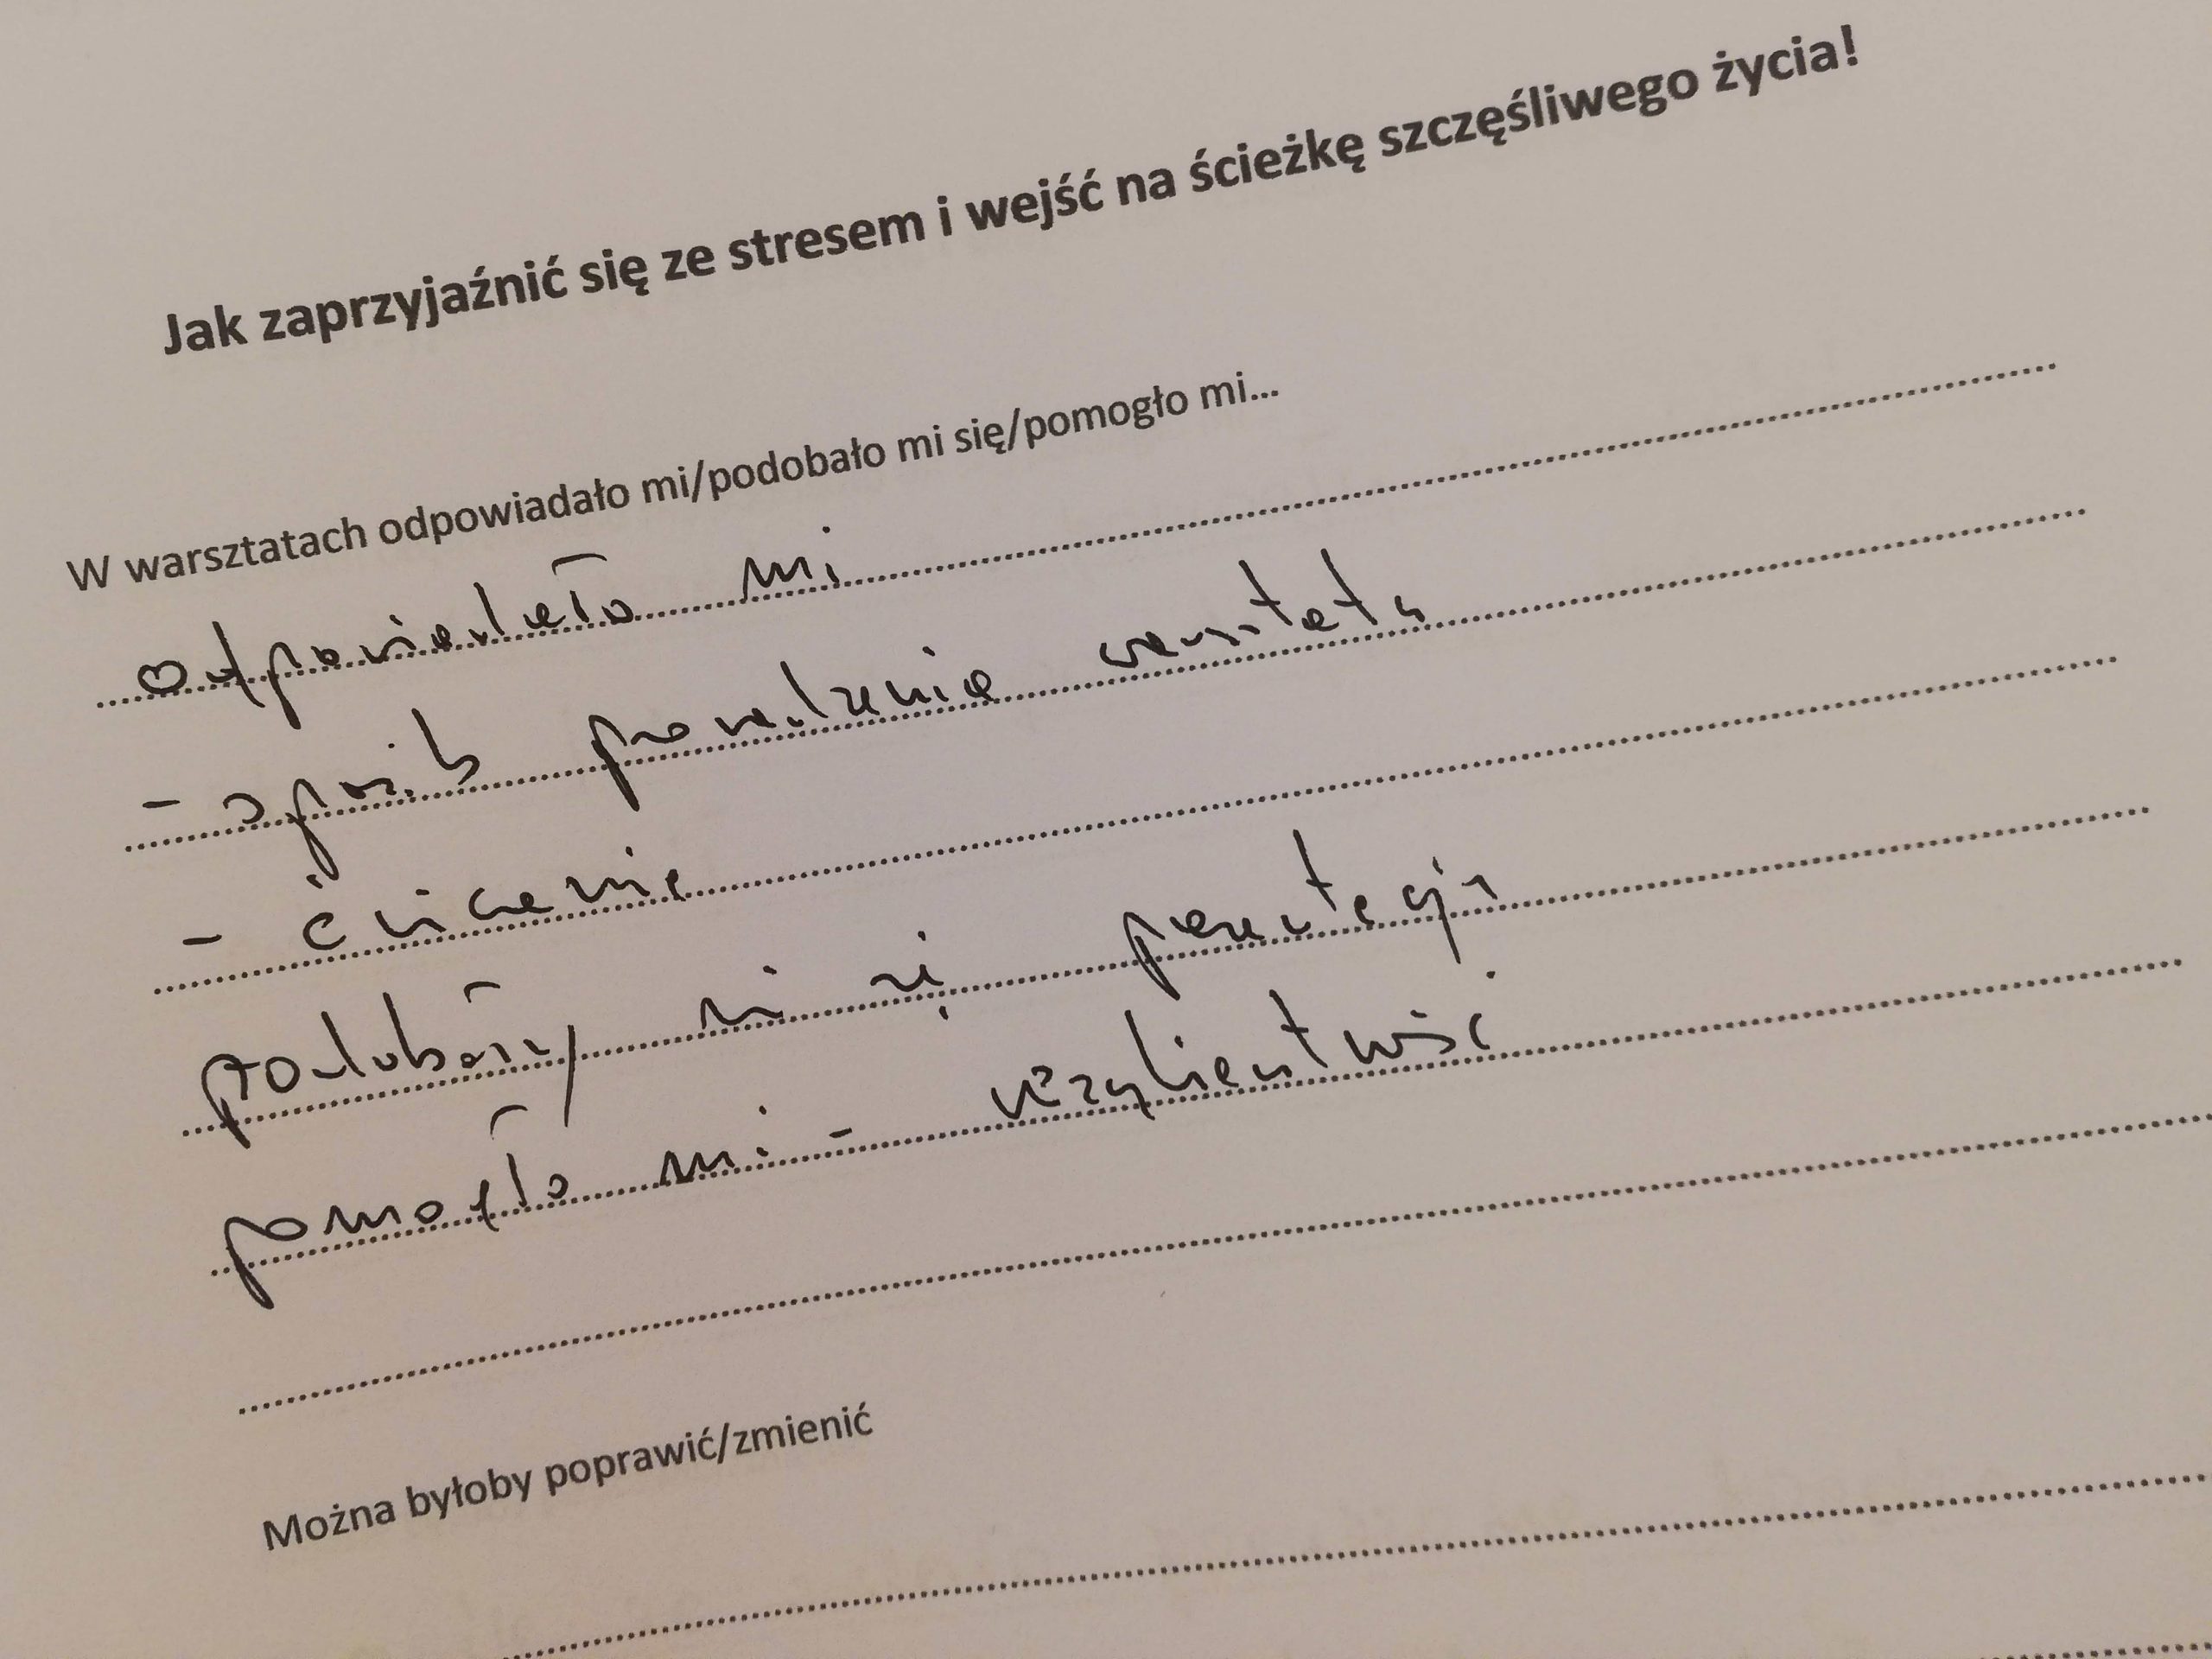 Jak zaprzyjaźnić się ze stresem i wejść na ścieżkę szczęśliwego życia!
W warsztatach odpowiadało mi/podobało mi się/pomogło mi...
odpowiadało mi
- sposób prowadzenia warsztatu
- ćwiczenie
podobały mi się prezentacja
pomogło mi -
Można byłoby poprawić/zmienić